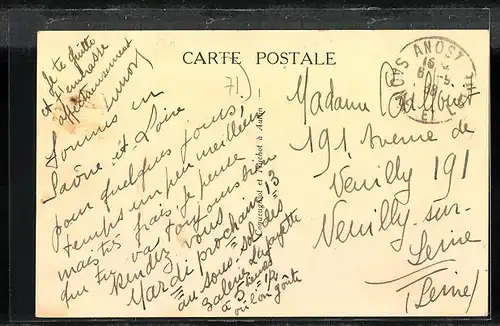 CARTE POSTALE
71.)
ANOST
16
6-9
38
SAÔNE ET LOIRE
Je te quitte
et t'embrasse
affectueusement
Sommes en
Saône-et-Loire
pour quelques jours
temps un peu meilleur
mais très frais je pense
que tu vas toujours bien
Rendez vous
Mardi prochain 13
au sous-sol des
galeries Lafayette
à 5 heures
où l'on goûte
Madame
191 Avenue de
Neuilly 191
Neuilly-sur-
Seine
(Seine)